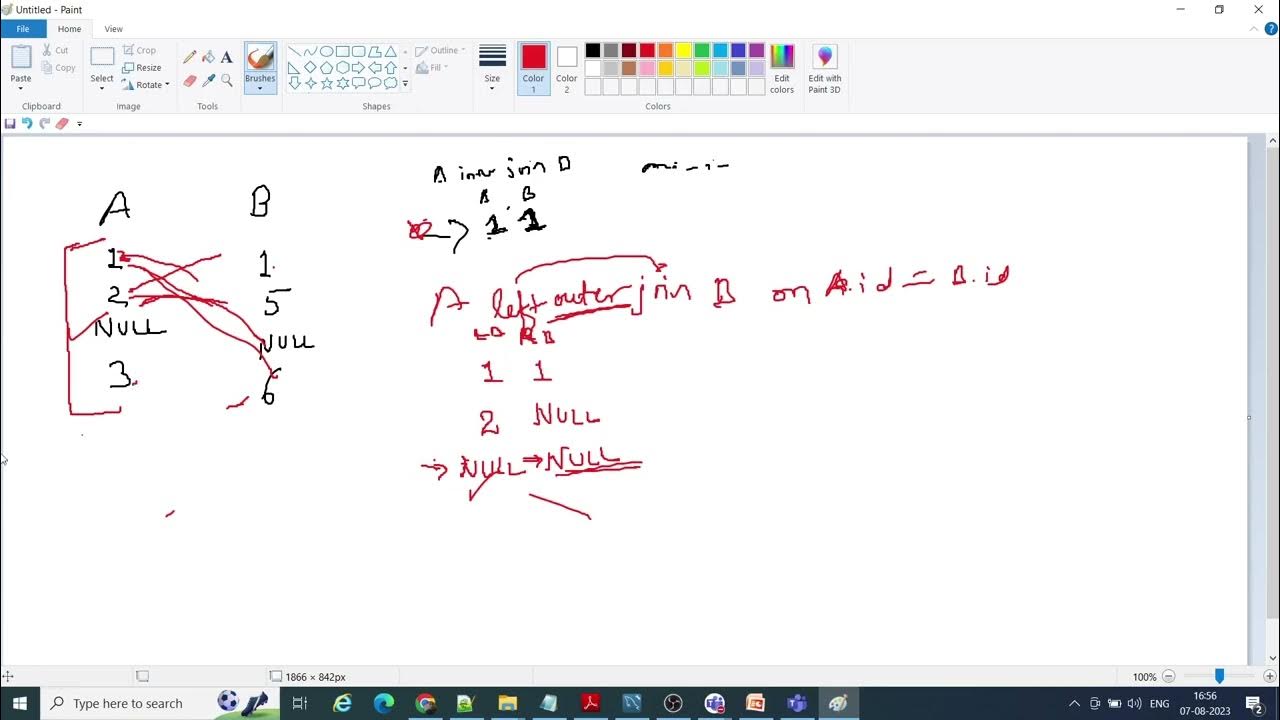 Untitled - Paint
File Home View
Paste Cut Copy Clipboard
Select Crop Resize Rotate Image
Tools
Brushes
Shapes Outline Fill
Size
Color 1 Color 2 Edit colors Colors
Edit with Paint 3D
A inner join B
A B
1 1
A B
1 1
2 5
NULL NULL
3 6
A left outer join B on A.id = B.id
B
1 1
2 NULL
→ NULL ⇒ NULL
1866 × 842px 100%
Type here to search
ENG 16:56
07-08-2023 2